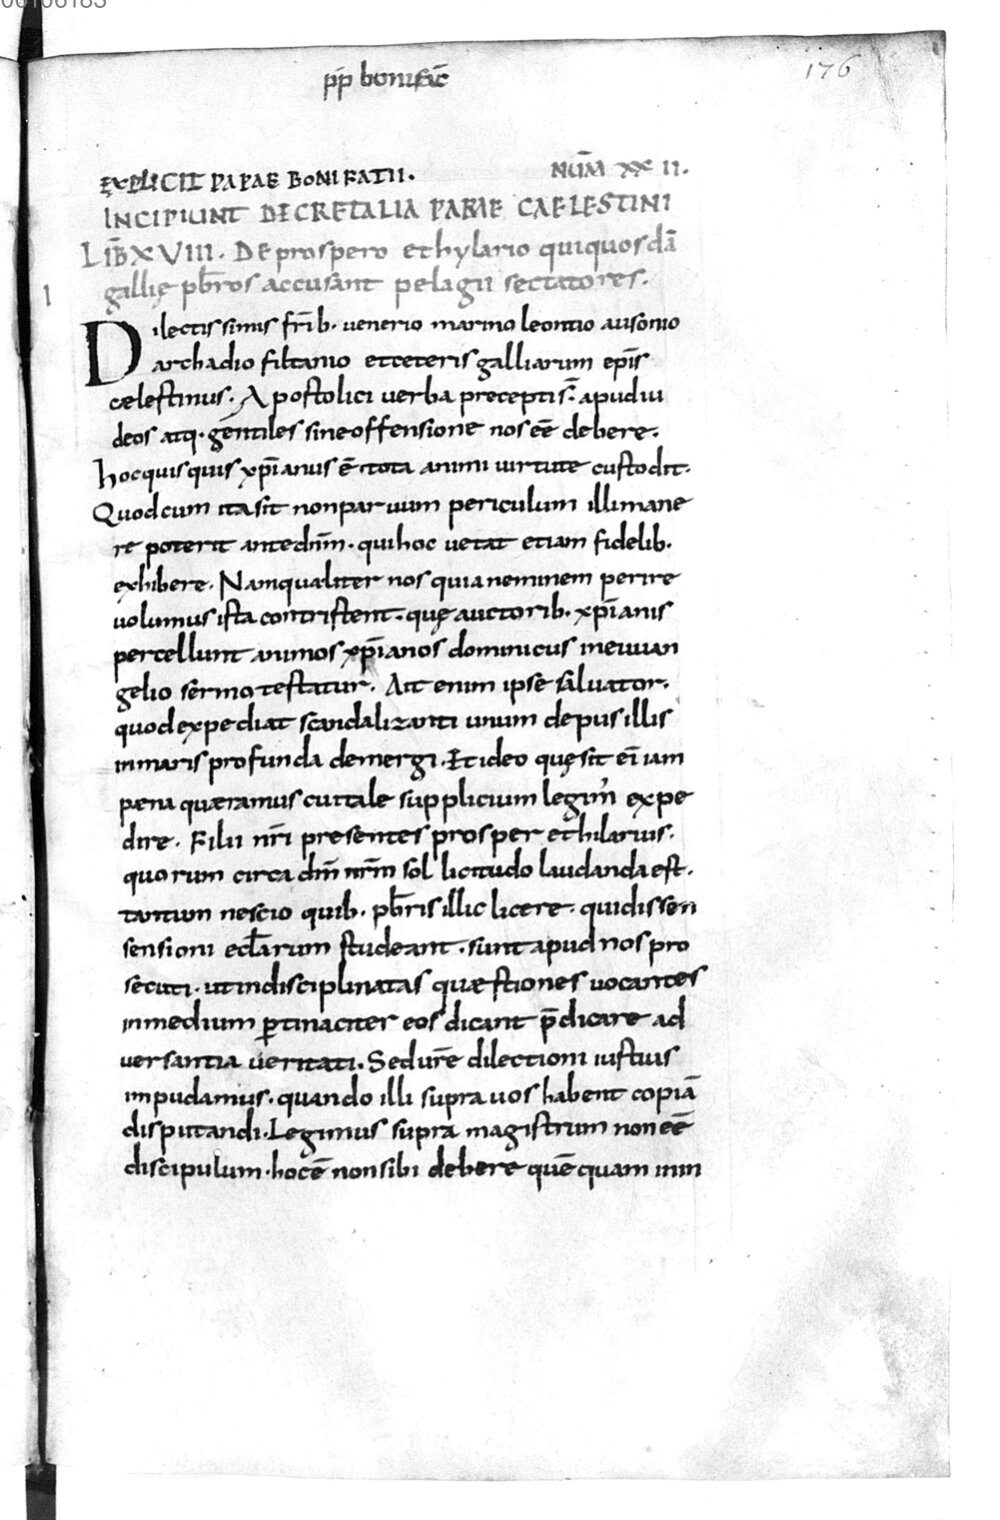 pp̄ bonifac̄
176
EXPLICIT PAPAE BONIFATII. NUM̄ XXII.
INCIPIUNT DECRETALIA PAPAE CAELESTINI
LIB̄ XVIII. De prospero et hylario qui quosdā
gallię pb̄ros accusant pelagii sectatores.
I
Dilectissimis fr̄ib. venerio marino leontio ausonio
archadio filtanio et ceteris galliarum ep̄is
cælestinus. Apostolici verba precepti s̄. apud iu
deos atq. gentiles sine offensione nos eē debere.
hoc quisquis xp̄ianus ē tota animi uirtute custodit.
Quod cum ita sit non paruum periculum illi mane
re poterit ante dn̄m. qui hoc uetat etiam fidelib.
exhibere. Nam qualiter nos quia neminem perire
uolumus ista contristent. quę auctorib. xp̄ianis
percellunt animos xp̄ianos dominicus in euuan
gelio sermo testatur. Ait enim ipse saluator.
quod expediat scandalizanti unum de pusillis
in maris profunda demergi. Et ideo quę sit ei̅ iam
pæna quæramus cui tale supplicium legim̉ expe
dire. Filii nr̄i presentes prosper et hilarius.
quorum circa dm̄ nr̄m sollicitudo laudanda est.
tantum nescio quib. pb̄ris illic licere. qui dissen
sensioni eccl̄arum studeant. sunt apud nos pro
secuti. ut indisciplinatas quæstiones uocantes
in medium ꝑtinaciter eos dicant p̄dicare ad
versantia ueritati. Sed ur̄e dilectioni iustius
impudamus. quando illi supra uos habent copiā
disputandi. Legimus supra magistrum non eē
discipulum. hoc ē non sibi debere quēquam inin